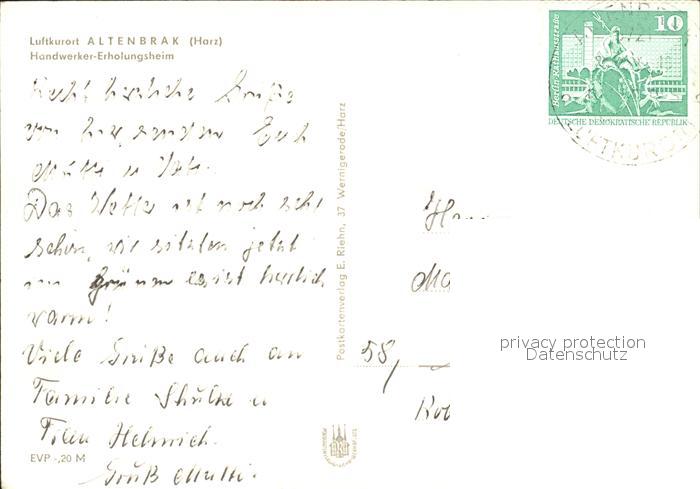 Luftkurort ALTENBRAK (Harz)
Handwerker-Erholungsheim
Recht herzliche Grüße
von hier senden Euch
Mutti u. Vati.
Das Wetter ist noch sehr
schön, wir sitzen jetzt
im Grünen es ist herrlich
warm!
Viele Grüße auch an
Familie Schulze u
Helmich.
Gruß Mutti.
EVP -,20 M
Postkartenverlag E. Riehn, 37 Wernigerode/Harz
Berlin-Rathausstraße
10
DEUTSCHE DEMOKRATISCHE REPUBLIK
LUFTKURORT
58,
privacy protection
Datenschutz